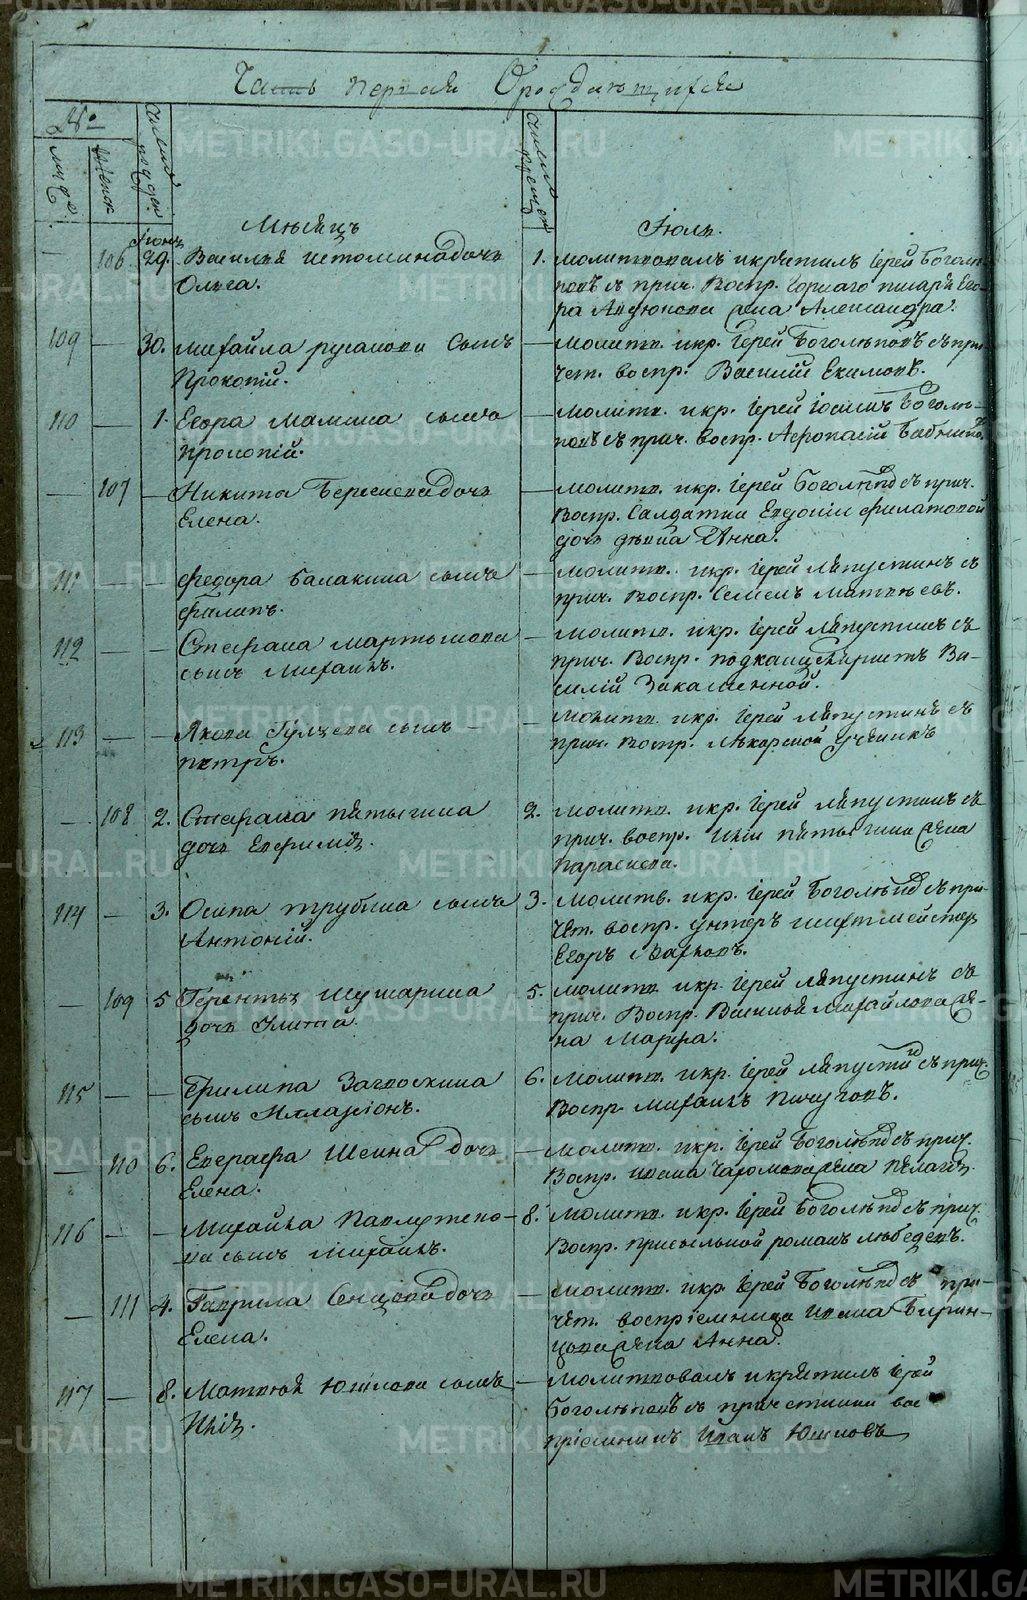 Часть первая О раждающихся
№
муж.
женск
число рожден
число крещен
Месяцъ
Июля.
106
Июня 29.
Василья Истомина дочь
Ольга.
1.
молитвовалъ и крестилъ Іерей Боголѣ-
повъ съ прич. Воспр. Горнаго писаря Его-
ра жена Александра.
109
30.
Михайла русанова сынъ
Прокопій.
молитв. и кр. Іерей Боголѣповъ съ при-
чет. воспр. Василій Екимовъ.
110
1.
Егора Мамина сынъ
Прокопій.
молитв. и кр. Іерей Іосифъ Боголѣ-
повъ съ прич. воспр. Афонасій
107
Никиты Береснева дочь
Елена.
молитв. и кр. Іерей Боголѣповъ съ прич.
Воспр. Салдатки Евдокіи филатовой
дочь дѣвка Анна.
111
федора Балакина сынъ
Филипъ.
молитв. и кр. Іерей Ляпустинъ съ
прич. воспр. Семенъ Матвѣевъ.
112
Стефана мартынова
сынъ Михаилъ.
молитв. и кр. Іерей Ляпустинъ съ
прич. Воспр. подканцеляристъ Ва-
силій Закаменной.
113
Якова Гулцева сынъ
петръ.
молитв. и кр. Іерей Ляпустинъ съ
прич. воспр. Лѣкарской ученикъ
108
2.
Стефана пятыгина
дочь Евфимія.
2.
молитв. и кр. Іерей Ляпустинъ съ
прич. воспр. пятыгина жена
Парасковья.
114
3.
Осипа трубина сынъ
Антоній.
3.
молитв. и кр. Іерей Боголѣповъ съ при-
чет. воспр. унтеръ шихтмейстеръ
Егоръ Марковъ.
109
5
Терентья Шушарина
дочь Улита.
5.
молитв. и кр. Іерей Ляпустинъ съ
прич. Воспр. Василья Михайлова же-
на Марфа.
115
Филипа Загвоскина
сынъ Илларіонъ.
6.
молитв. и кр. Іерей Ляпустинъ съ прич.
Воспр. Михаилъ Пичуговъ.
110
6.
Евграфа Шеина дочь
Елена.
молитв. и кр. Іерей Боголѣповъ съ прич.
Воспр. Ивана жена Пелагея.
116
Михайла Павлуткно-
ва сынъ Михаилъ.
8.
молитв. и кр. Іерей Боголѣповъ съ прич.
Воспр. присыльной романъ лебедевъ.
111
4.
Гаврила Сенцова дочь
Елена.
молитв. и кр. Іерей Боголѣповъ съ при-
чет. воспріемница Ивана Бирин-
цова жена Анна.
117
8.
Матвея Юшкова сынъ
Илія.
молитвовалъ и крестилъ Іерей
Боголѣповъ съ причетники вос-
пріемникъ Иванъ Юшковъ
METRIKI.GASO-URAL.RU